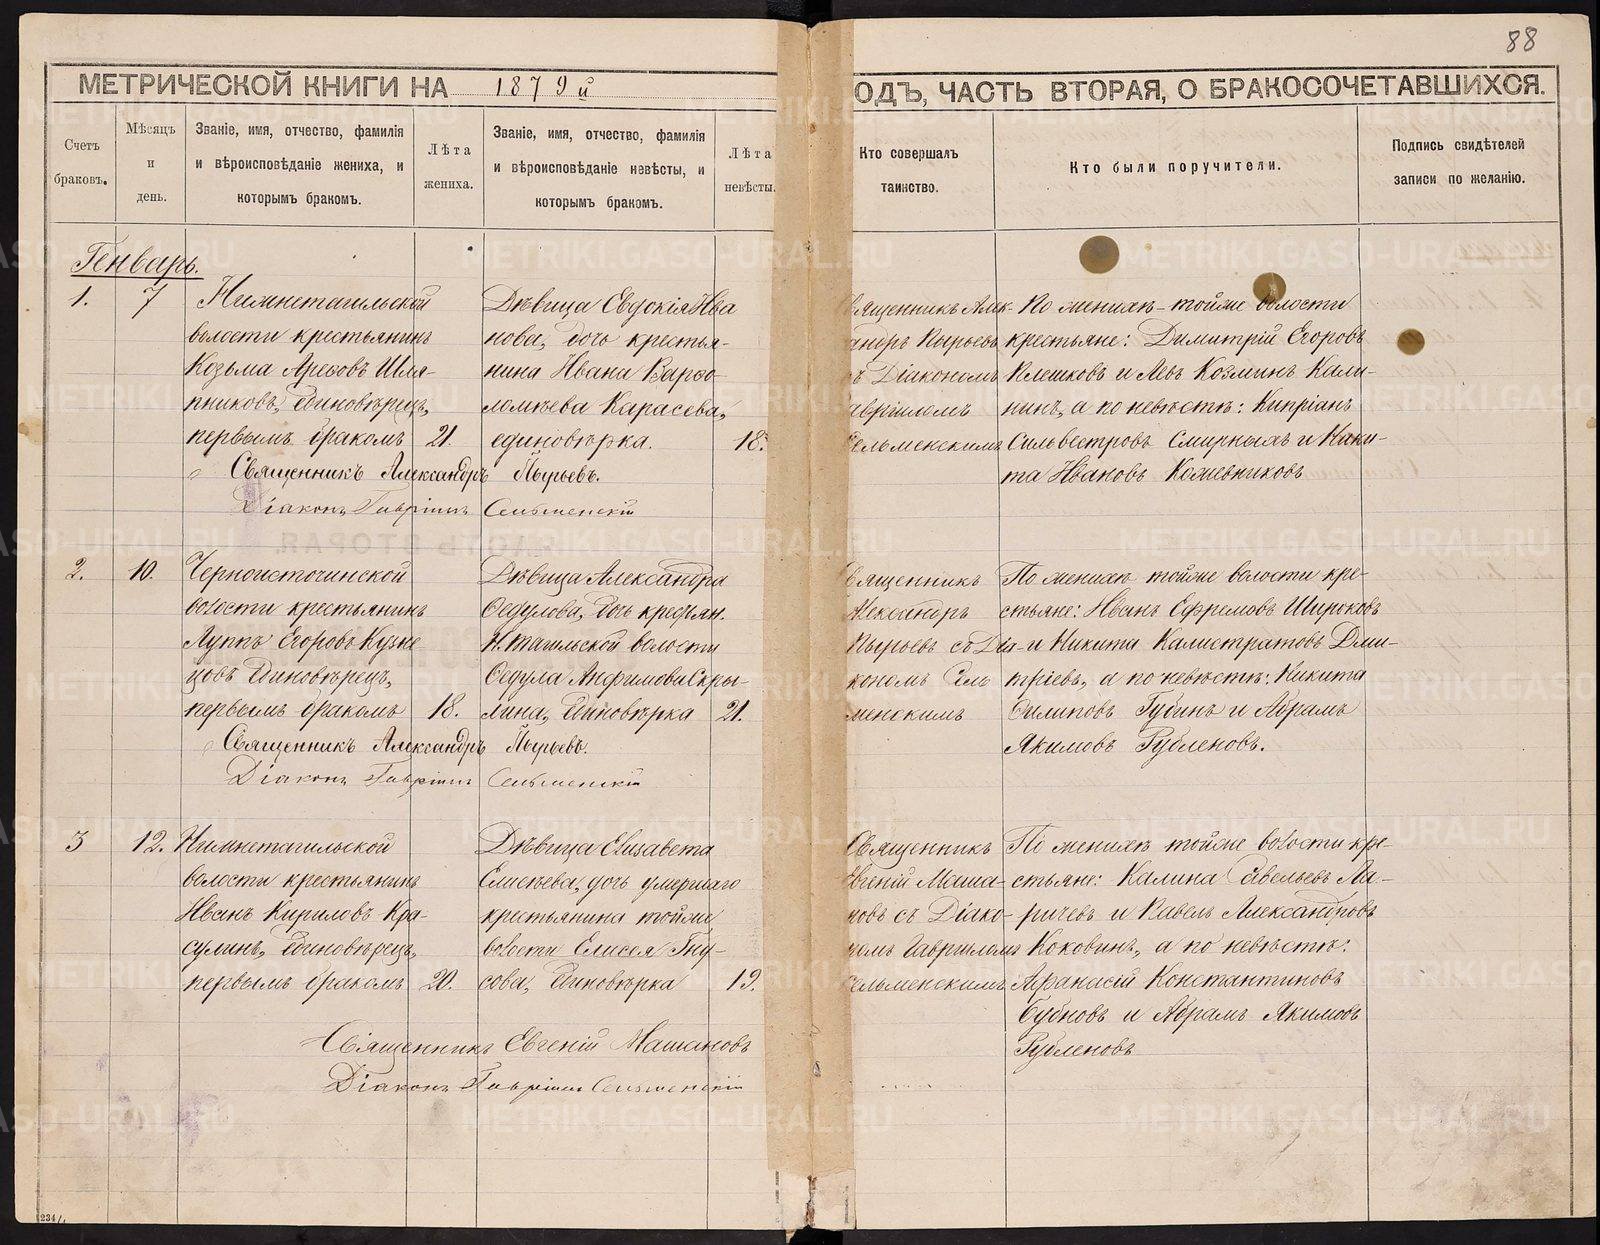 88
МЕТРИЧЕСКОЙ КНИГИ НА 1879й ОДЪ, ЧАСТЬ ВТОРАЯ, О БРАКОСОЧЕТАВШИХСЯ.
Счетъ браковъ.
Мѣсяцъ и день.
Званіе, имя, отчество, фамилія и вѣроисповѣданіе жениха, и которымъ бракомъ.
Лѣта жениха.
Званіе, имя, отчество, фамилія и вѣроисповѣданіе невѣсты, и которымъ бракомъ.
Лѣта невѣсты.
Кто совершалъ таинство.
Кто были поручители.
Подпись свидѣтелей записи по желанію.
Генварь.
1. 7
Нижнетагильской
волости крестьянинъ
Козьма Арефовъ Шля-
пниковъ, единовѣрецъ,
первымъ бракомъ 21.
Дѣвица Евдокія Ива
нова, дочь крестья-
нина Ивана Варѳо-
ломѣева Карасева,
единовѣрка. 18.
вященникъ Алек-
андръ Пырьевъ
ъ Діакономъ
авріиломъ
ельменскимъ
По женихѣ - тойже волости
крестьяне: Димитрій Егоровъ
Плешковъ и Левъ Козминъ Кали-
нинъ, а по невѣстѣ: Кипріанъ
Сильвестровъ Смирныхъ и Ники-
та Ивановъ Кожевниковъ
Священникъ Александръ Пырьевъ.
Діаконъ Гавріилъ Сельменскій
2. 10.
Черноисточинской
волости крестьянинъ
Луппъ Егоровъ Кузне
цовъ единовѣрецъ,
первымъ бракомъ 18.
Дѣвица Александра
Ѳедулова, дочь крестьян.
Н. тагильской волости
Ѳедула Анфимова Скры-
лина, единовѣрка 21.
Священникъ
Александръ
Пырьевъ съ Діа-
кономъ Сель
менскимъ
По женихѣ тойже волости кре-
стьяне: Иванъ Ефремовъ Широковъ
и Никита Калистратовъ Дми-
тріевъ, а по невѣстѣ: Никита
Филиповъ Губинъ и Абрамъ
Якимовъ Рубленовъ.
Священникъ Александръ Пырьевъ.
Діаконъ Гавріилъ Сельменскій
3 12.
Нижнетагильской
волости крестьянинъ
Иванъ Кириловъ Кра-
сулинъ, единовѣрецъ,
первымъ бракомъ 20.
Дѣвица Елисавета
Елисѣева, дочь умершаго
крестьянина тойже
волости Елисея Гну-
сова, единовѣрка 19.
Священникъ
Евгеній Маша-
новъ съ Діако-
номъ Гавріиломъ
Сельменскимъ
По женихѣ тойже волости кре-
стьяне: Калина Савельевъ Ла-
ричевъ и Павелъ Александровъ
Коковинъ, а по невѣстѣ:
Афанасій Константиновъ
Бубновъ и Абрамъ Якимовъ
Рубленовъ
Священникъ Евгеній Машановъ
Діаконъ Гавріилъ Сельменскій
METRIKI.GASO-URAL.RU